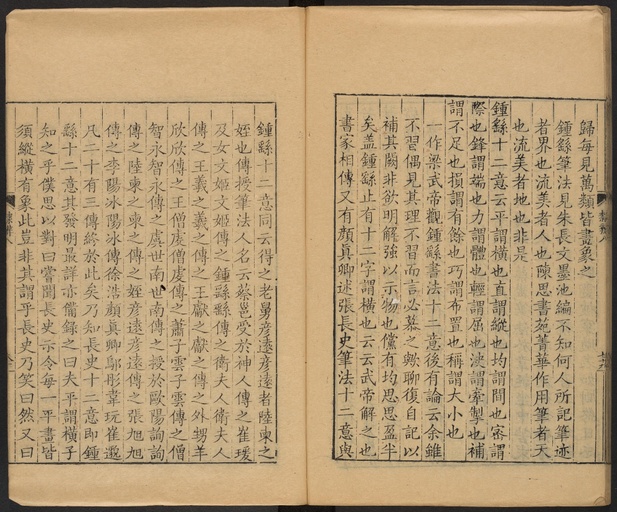 歸每見萬類皆畫象之
鍾繇筆法見朱長文墨池編不知何人所記筆迹
者界也流美者人也陳思書苑菁華作用筆者天
也流美者地也非是
鍾繇十二意云平謂橫也直謂縱也均謂間也密謂
際也鋒謂端也力謂體也輕謂屈也決謂牽掣也補
謂不足也損謂有餘也巧謂布置也稱謂大小也
一作梁武帝觀鍾繇書法十二意後有論云余雖
不習偶見其理不習而言必慕之歟聊復自記以
補其闕非欲明解強以示物也儻有均思思盈半
矣蓋鍾繇止有十二字謂橫也云云武帝解之也
書家相傳又有顏真卿述張長史筆法十二意與
鍾繇十二意同云得之老舅彥遠彥遠者陸柬之
姪也傳授筆法人名云蔡邕受於神人傳之崔瑗
及女文姬文姬傳之鍾繇鍾繇傳之衛夫人衛夫人
傳之王羲之羲之傳之王獻之獻之傳之外甥羊
欣欣傳之王僧虔僧虔傳之蕭子雲子雲傳之僧
智永智永傳之虞世南世南傳之授於歐陽詢詢
傳之陸柬之柬之傳之姪彥遠彥遠傳之張旭旭
傳之李陽冰陽冰傳徐浩顏真卿鄔彤韋玩崔邈
凡二十有三傳終於此矣乃知長史十二意即鍾
繇十二意其發明最詳亦備錄之曰夫平謂橫子
知之乎僕思以對曰嘗聞長史示令每一平畫皆
須縱橫有象此豈非其謂乎長史乃笑曰然又曰